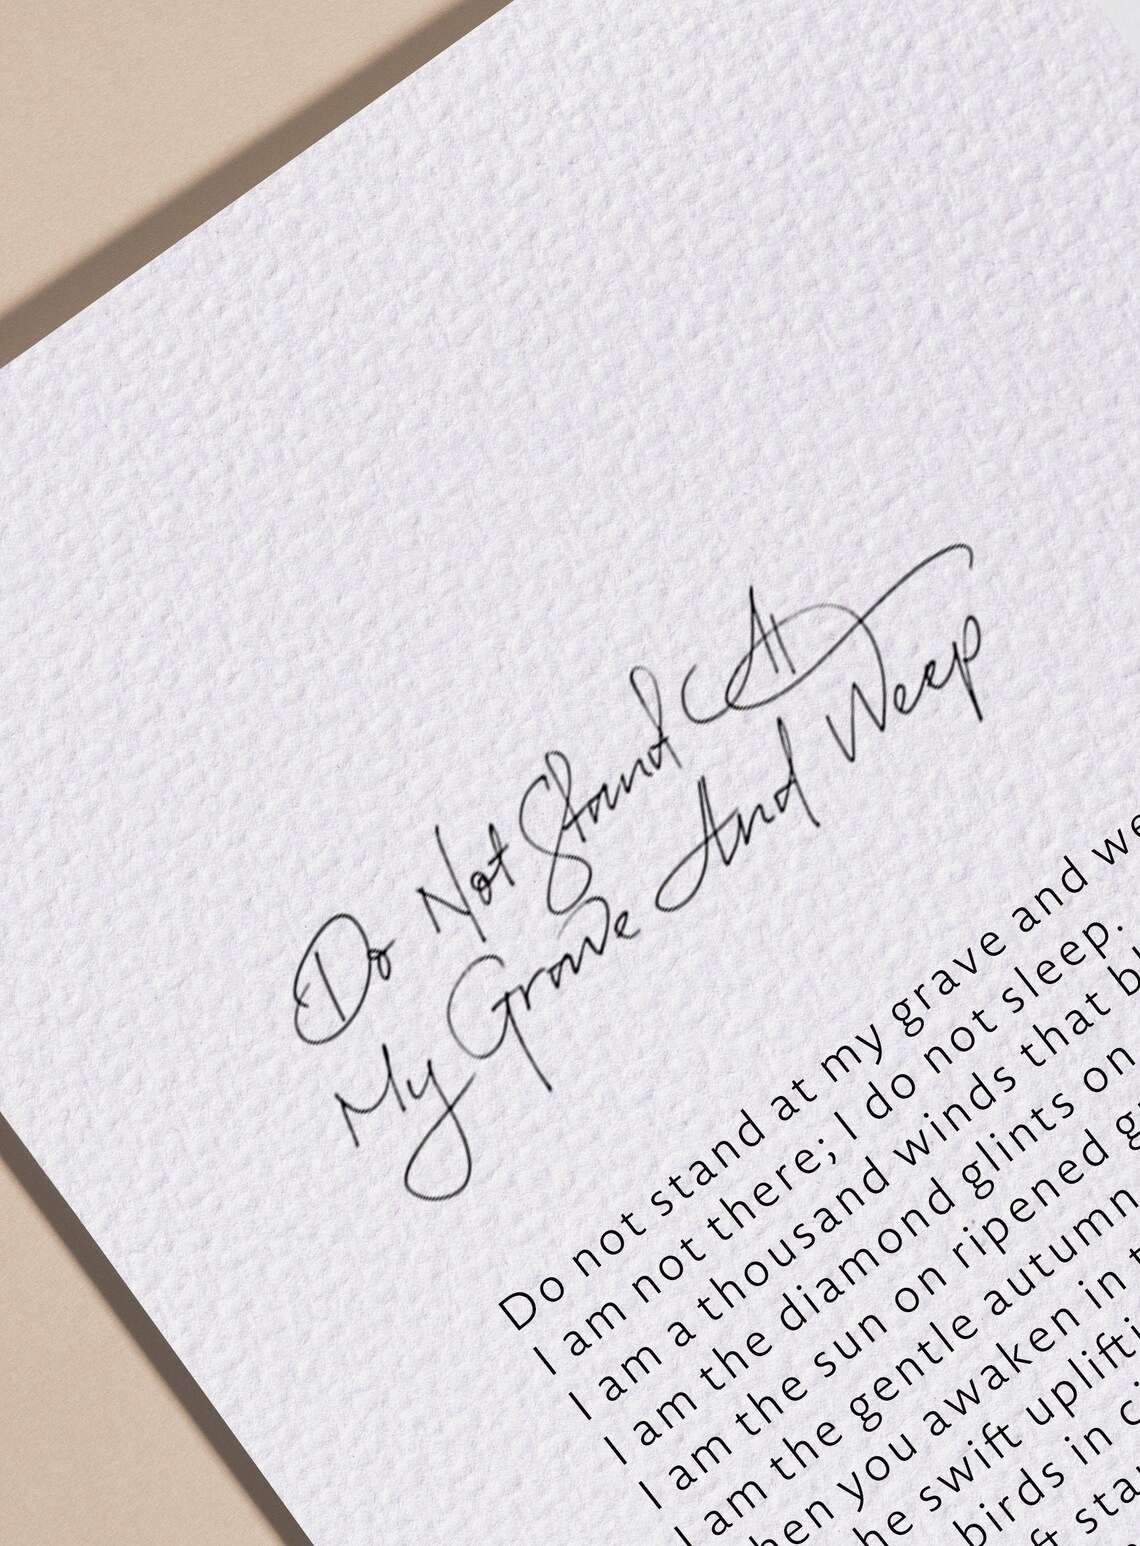 Do Not Stand At
My Grave And Weep
Do not stand at my grave and we
I am not there; I do not sleep.
I am a thousand winds that bl
I am the diamond glints on
I am the sun on ripened gr
I am the gentle autumn
hen you awaken in t
he swift uplifti
birds in ci
ft sta